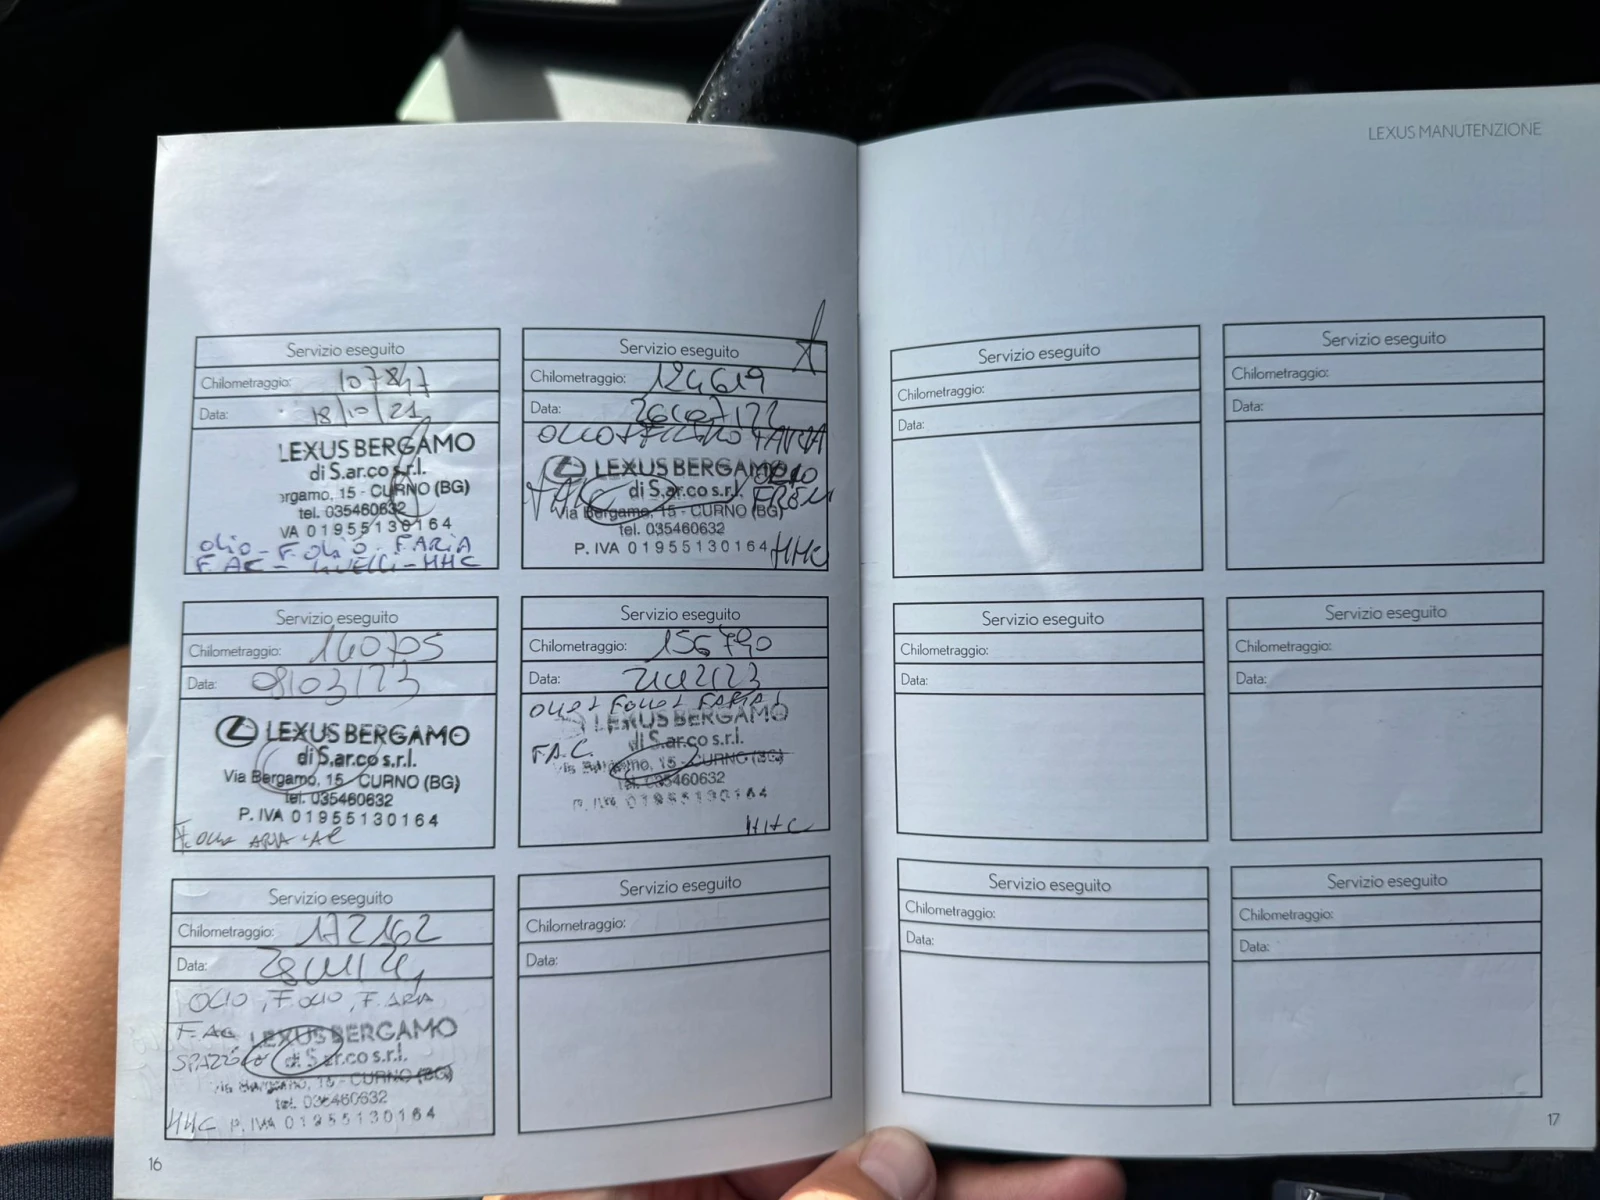 LEXUS MANUTENZIONE
Servizio eseguito
Chilometraggio: 107847
Data: 18/10/21
LEXUS BERGAMO
di S.ar.co s.r.l.
ergamo, 15 - CURNO (BG)
tel. 035460632
VA 01955130164
OLIO - F. OLIO - F. ARIA
F. AC - LIVELLI - HHC
Servizio eseguito
Chilometraggio: 124619
Data:
OLIO + FILTRO + ARIA
LEXUS BERGAMO
OLIO
di S.ar.co s.r.l.
FRENI
Via Bergamo, 15 - CURNO (BG)
tel. 035460632
P. IVA 01955130164
HHC
Servizio eseguito
Chilometraggio: 140705
Data: 08/03/23
LEXUS BERGAMO
di S.ar.co s.r.l.
Via Bergamo, 15 CURNO (BG)
tel. 035460632
P. IVA 01955130164
ARIA
Servizio eseguito
Chilometraggio: 156790
Data:
OLIO + F OLIO + F ARIA +
LEXUS BERGAMO
F.A.C.
di S.ar.co s.r.l.
15 - CURNO (BG)
tel. 035460632
P. IVA 01955130164
HHC
Servizio eseguito
Chilometraggio: 172162
Data:
OLIO, F OLIO, F. ARIA
F. AC
LEXUS BERGAMO
di S.ar.co s.r.l.
15 - CURNO (BG)
tel. 035460632
HHC
P. IVA 01955130164
Servizio eseguito
Chilometraggio:
Data:
16
Servizio eseguito
Chilometraggio:
Data:
Servizio eseguito
Chilometraggio:
Data:
Servizio eseguito
Chilometraggio:
Data:
Servizio eseguito
Chilometraggio:
Data:
Servizio eseguito
Chilometraggio:
Data:
Servizio eseguito
Chilometraggio:
Data:
17